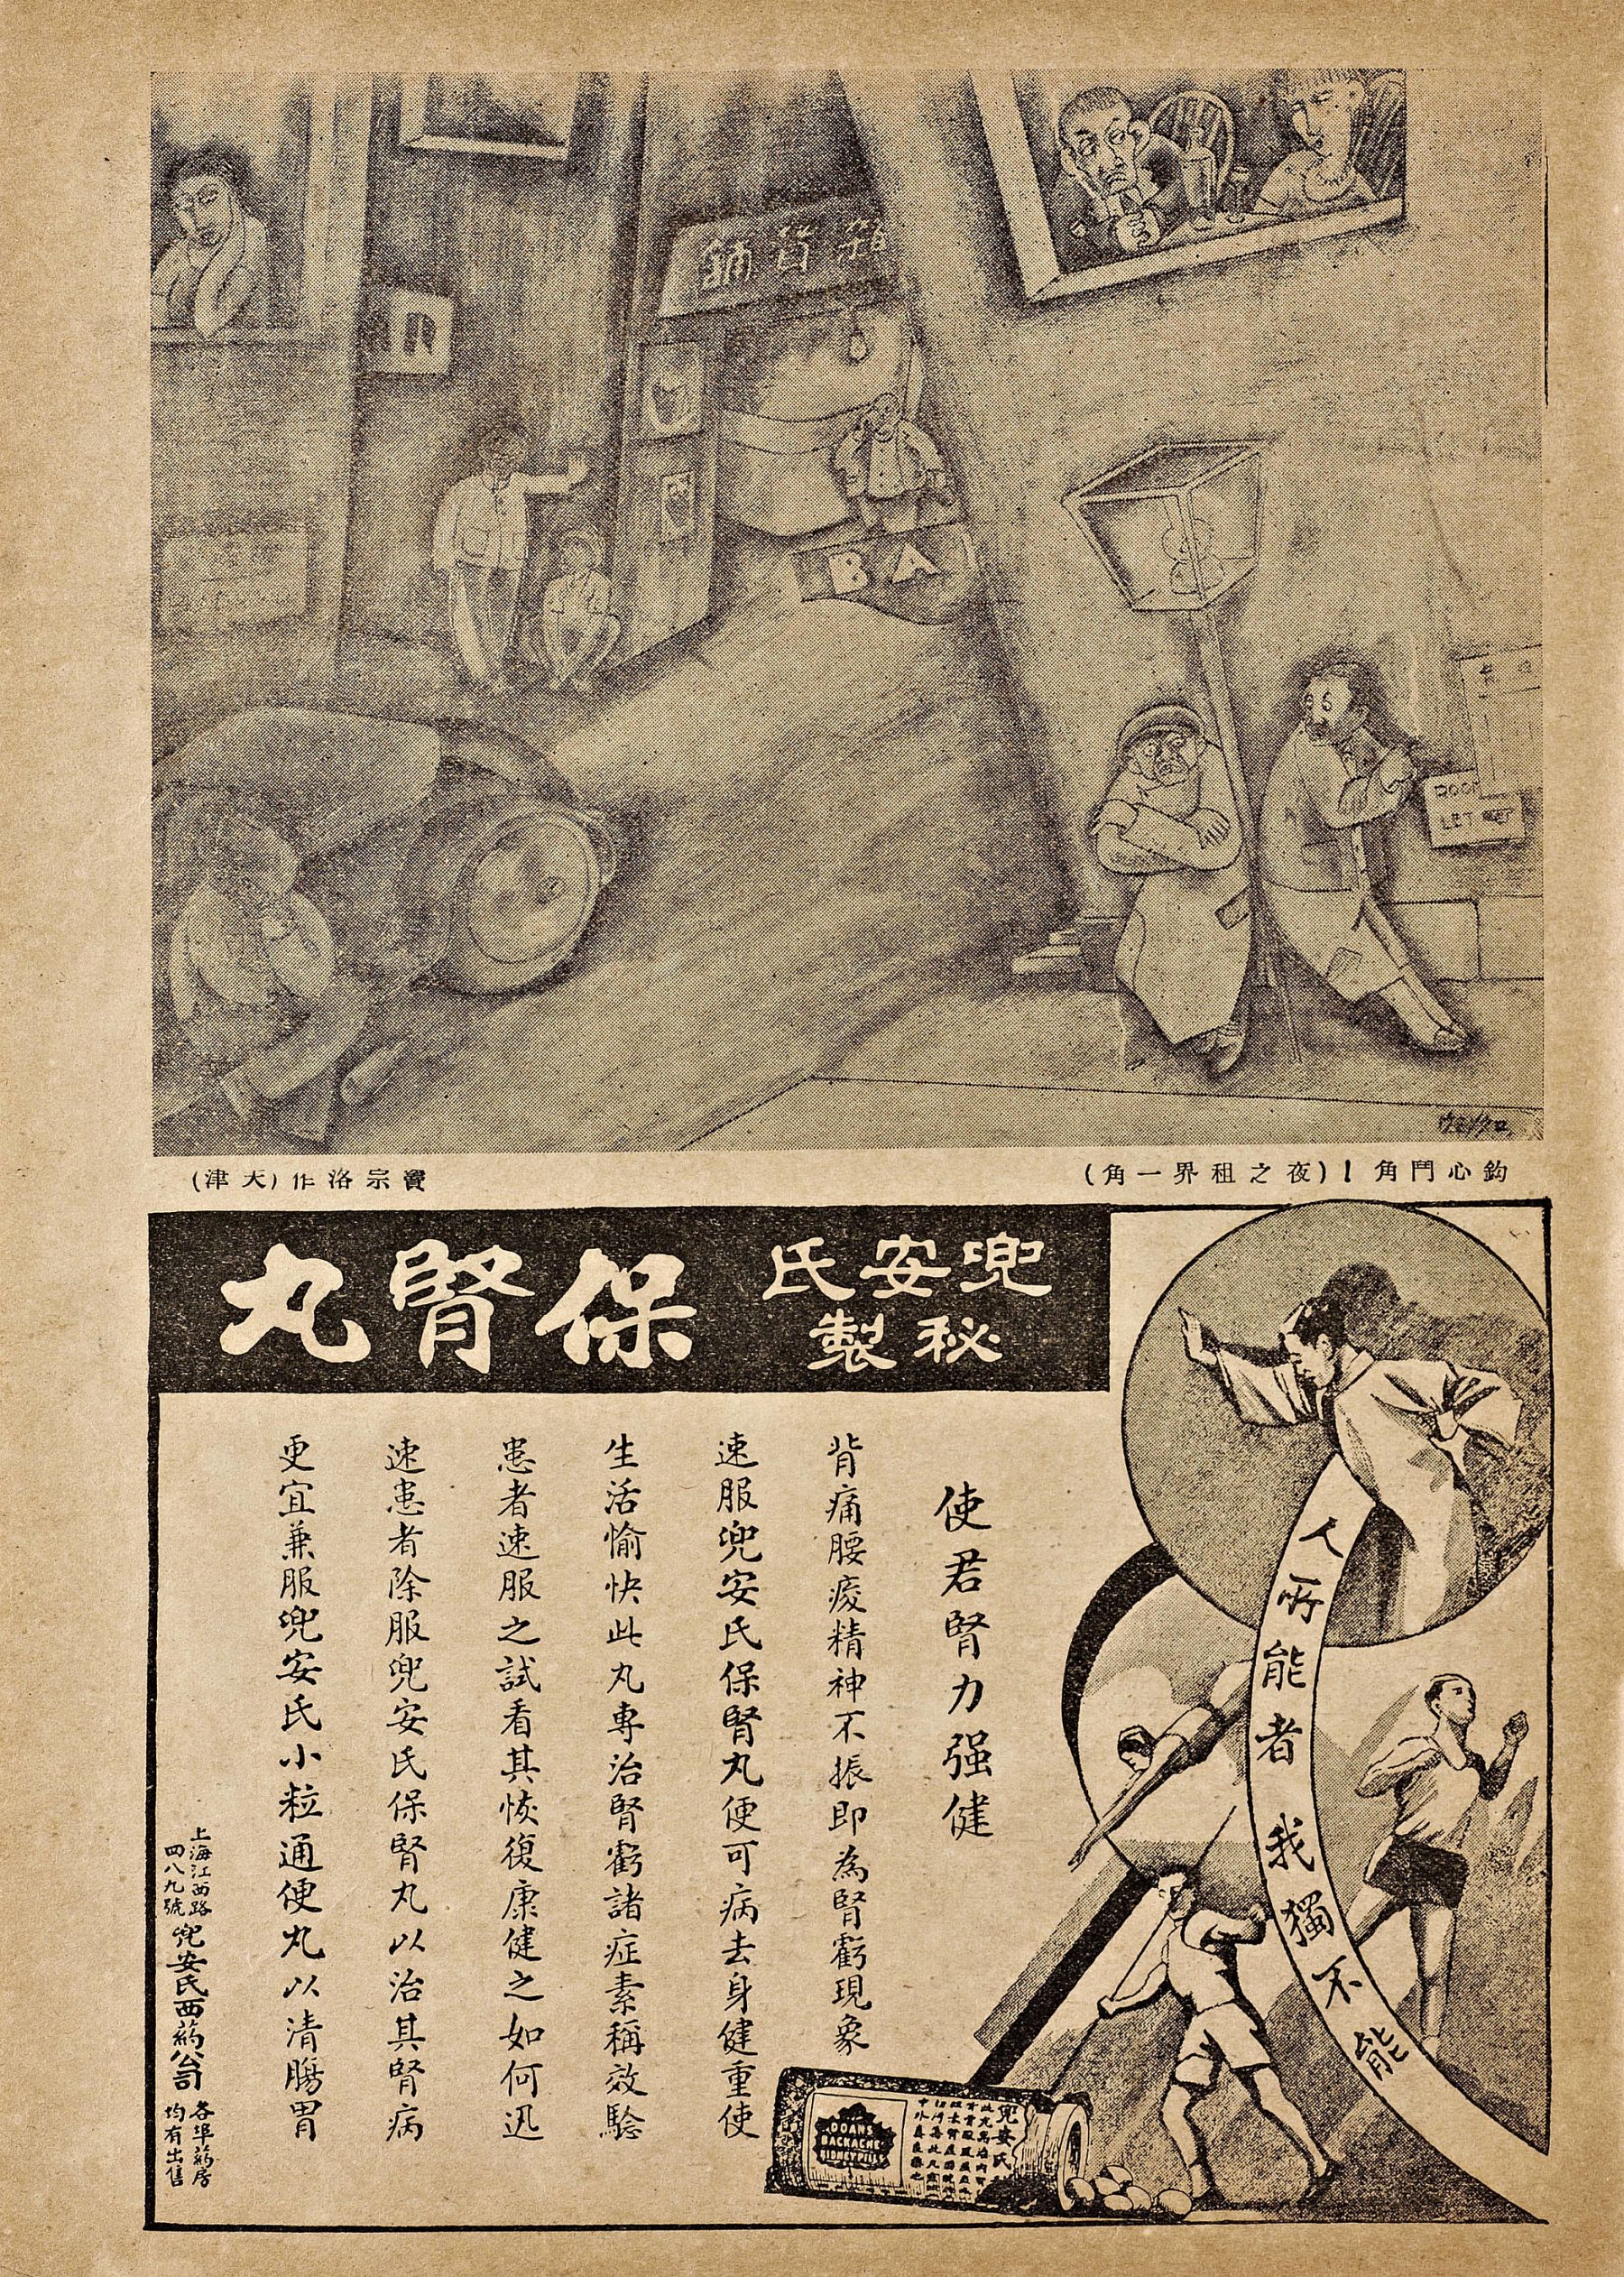 鋪貨雜
BA
ROOM
LET
鈎心鬥角 (夜之租界一角)
竇宗洛作(天津)
兜安氏
秘製
保腎丸
人所能者我獨不能
使君腎力强健
背痛腰痠精神不振即為腎虧現象
速服兜安氏保腎丸便可病去身健重使
生活愉快此丸專治腎虧諸症素稱效驗
患者速服之試看其恢復康健之如何迅
速患者除服兜安氏保腎丸以治其腎病
更宜兼服兜安氏小粒通便丸以清腸胃
DOAN'S
BACKACHE
KIDNEY PILLS
兜安氏
上海江西路
四八九號
兜安氏西葯公司
各埠葯房
均有出售